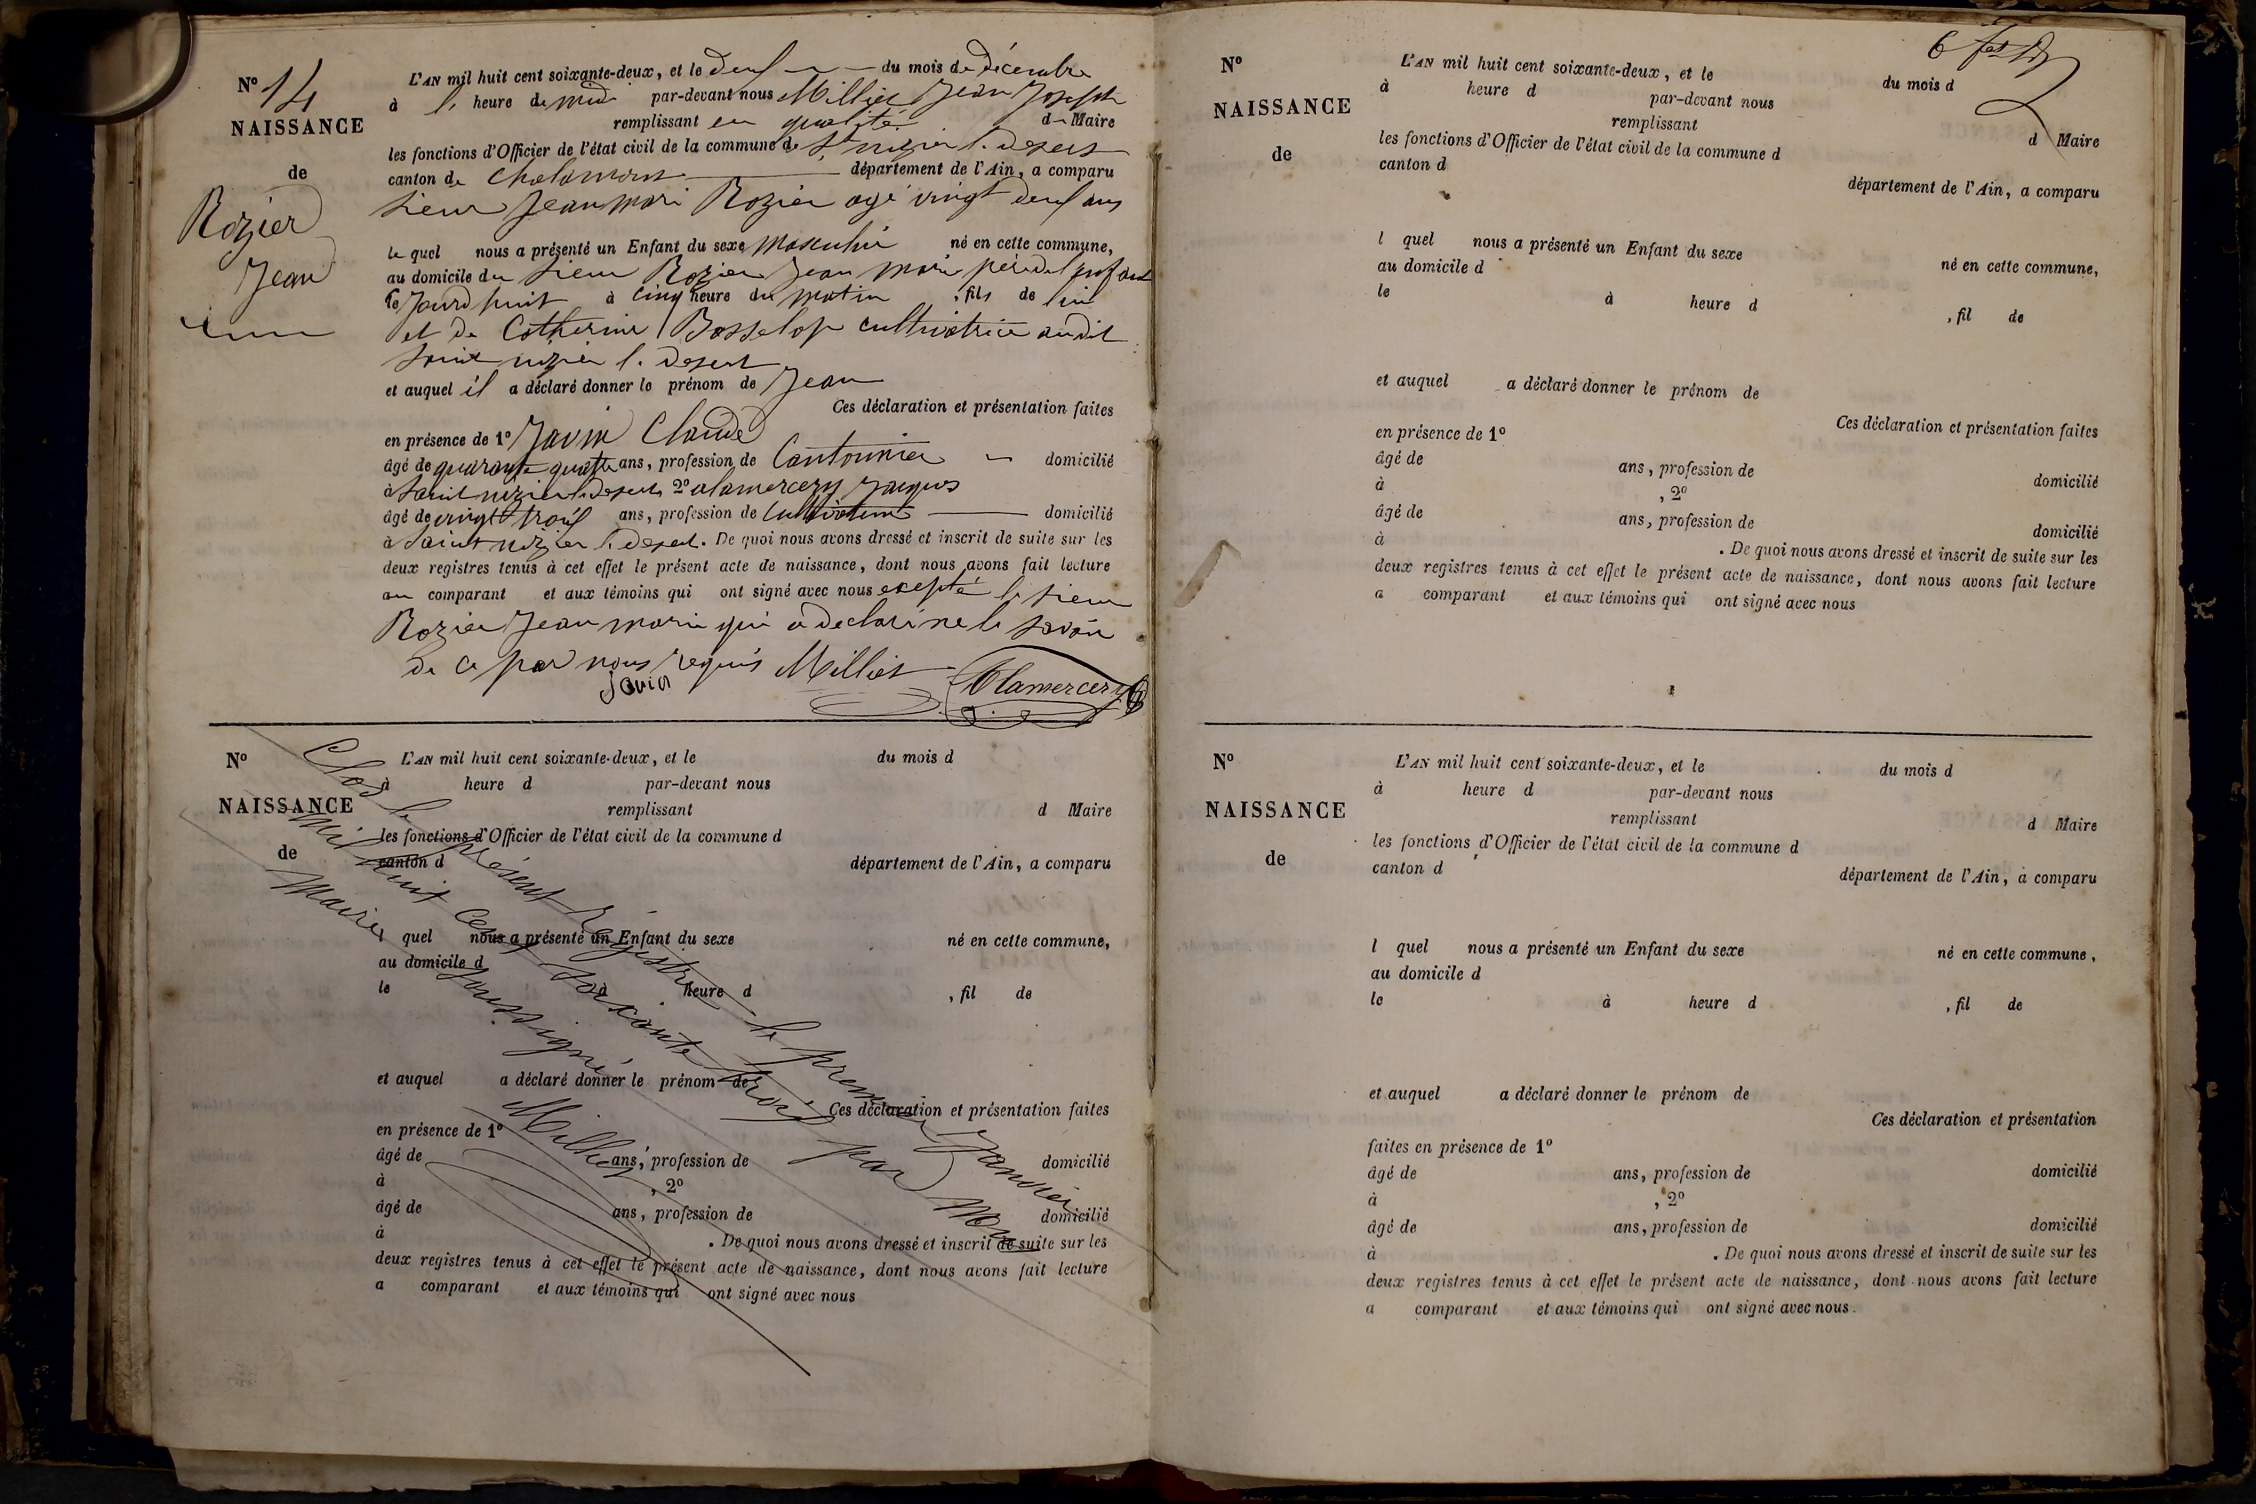 Nº 14
NAISSANCE
de
Rozier
Jean
L'AN mil huit cent soixante-deux, et le deux du mois de décembre
à l' heure de midi par-devant nous Milliet Jean Joseph
remplissant en qualité de Maire
les fonctions d'Officier de l'état civil de la commune de St nizier l. desert
canton de Chalamont département de l'Ain, a comparu
sieur Jean mari Rozier agé vingt deux ans
le quel nous a présenté un Enfant du sexe masculin né en cette commune,
au domicile du sieur Rozier Jean mari père de l'enfant
le jourd huit à cinq heure du matin , fils de lui
et de Catherine Bosselop cultivatrice audit
saint nizier l. desert
et auquel il a déclaré donner le prénom de Jean
Ces déclaration et présentation faites
en présence de 1º Javin Claude
âgé de quarante quatre ans, profession de Cantonnier domicilié
à saint nizier l. desert 2º alamercery jacques
âgé de vingt trois ans, profession de Cultivateur domicilié
à saint nizier l. desert. De quoi nous avons dressé et inscrit de suite sur les
deux registres tenus à cet effet le présent acte de naissance, dont nous avons fait lecture
au comparant et aux témoins qui ont signé avec nous excepté le sieur
Rozier Jean marie qui a declaré ne le savoir
de ce par nous requis Milliet
Javin Alamercery
Nº
NAISSANCE
de
L'AN mil huit cent soixante-deux, et le du mois d
à heure d par-devant nous
remplissant d Maire
les fonctions d'Officier de l'état civil de la commune d
canton d département de l'Ain, a comparu
l quel nous a présenté un Enfant du sexe né en cette commune,
au domicile d
le à heure d , fil de
et auquel a déclaré donner le prénom de
Ces déclaration et présentation faites
en présence de 1º
âgé de ans, profession de domicilié
à , 2º
âgé de ans, profession de domicilié
à . De quoi nous avons dressé et inscrit de suite sur les
deux registres tenus à cet effet le présent acte de naissance, dont nous avons fait lecture
a comparant et aux témoins qui ont signé avec nous
Clos le présent Régistre le premier Janvier
mil huit cent soixante trois par nous
Maire soussigné
Milliet
6
Nº
NAISSANCE
de
L'AN mil huit cent soixante-deux, et le du mois d
à heure d par-devant nous
remplissant d Maire
les fonctions d'Officier de l'état civil de la commune d
canton d département de l'Ain, a comparu
l quel nous a présenté un Enfant du sexe né en cette commune,
au domicile d
le à heure d , fil de
et auquel a déclaré donner le prénom de
Ces déclaration et présentation faites
en présence de 1º
âgé de ans, profession de domicilié
à , 2º
âgé de ans, profession de domicilié
à . De quoi nous avons dressé et inscrit de suite sur les
deux registres tenus à cet effet le présent acte de naissance, dont nous avons fait lecture
a comparant et aux témoins qui ont signé avec nous
Nº
NAISSANCE
de
L'AN mil huit cent soixante-deux, et le du mois d
à heure d par-devant nous
remplissant d Maire
les fonctions d'Officier de l'état civil de la commune d
canton d département de l'Ain, a comparu
l quel nous a présenté un Enfant du sexe né en cette commune,
au domicile d
le à heure d , fil de
et auquel a déclaré donner le prénom de
Ces déclaration et présentation
faites en présence de 1º
âgé de ans, profession de domicilié
à , 2º
âgé de ans, profession de domicilié
à . De quoi nous avons dressé et inscrit de suite sur les
deux registres tenus à cet effet le présent acte de naissance, dont nous avons fait lecture
a comparant et aux témoins qui ont signé avec nous.